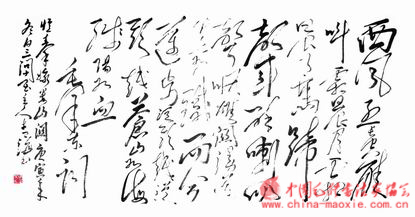 西风烈长空雁
叫霜晨月霜晨
月马蹄
声碎喇叭
声咽雄关漫道
真如铁而今
迈步从头越从
头越苍山如海
残阳如血
毛泽东词
忆秦娥娄山关庚寅年
冬月三
中国毛体书法
www.china-maoxie.com.cn